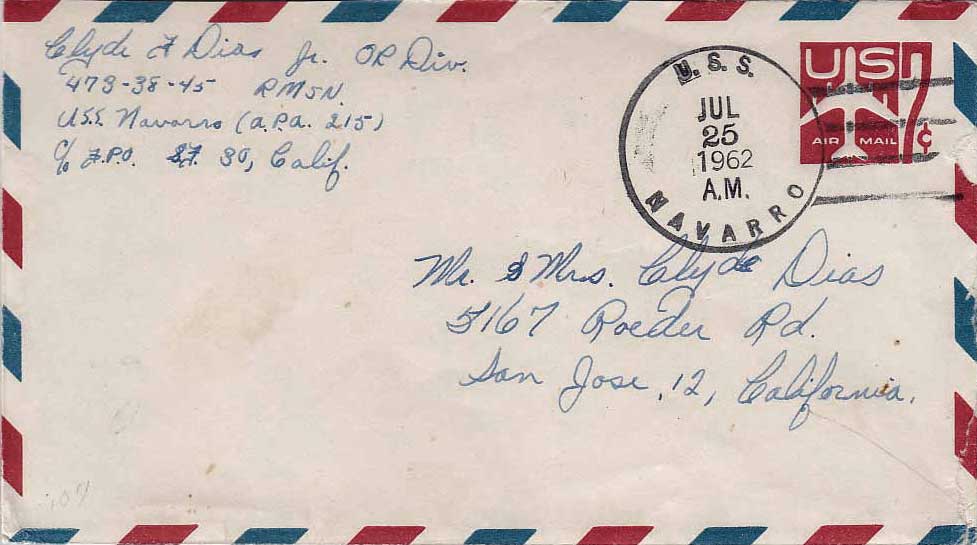 Clyde F Dias Jr. OR Div.
473-38-45 RMSN
USS Navarro (a.p.a. 215)
c/o F.P.O. S.F. 30, Calif.
U.S.S.
JUL
25
1962
A.M.
NAVARRO
US
7¢
AIR MAIL
Mr. & Mrs. Clyde Dias
5167 Roeder Rd.
San Jose, 12, California.